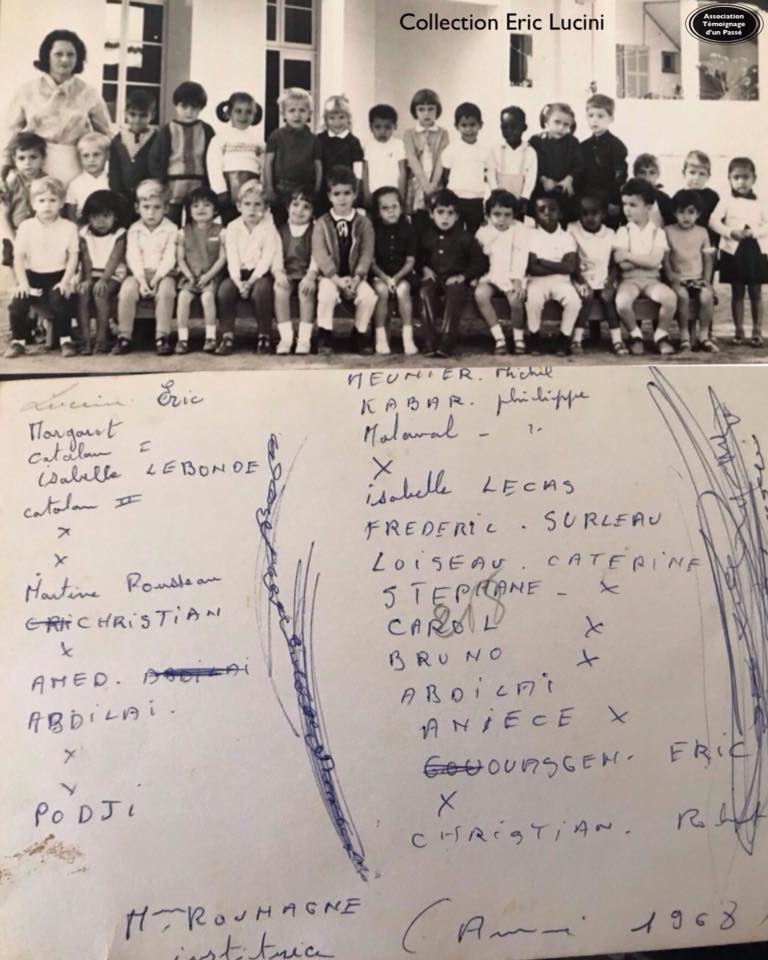 Collection Eric Lucini
Association
Témoignage
d'un Passé
Lucini Eric
Margaret
catalan I
isabelle LEBONDE
catalan II
x
x
Martine Rousseau
CHRISTIAN
x
AMED. ABDILAI
ABDILAI.
x
x
PODJI
MEUNIER. Michel
KABAR. philippe
Malaval - ?
X
isabelle LECAS
FREDERIC. SURLEAU
LOISEAU. CATERINE
STEPHANE - X
218
CAROL X
BRUNO X
ABDILAI
ANIECE X
OURSGEN. ERIC
X
CHRISTIAN.
Mme ROUMAGNE
institutrice
( 1968)